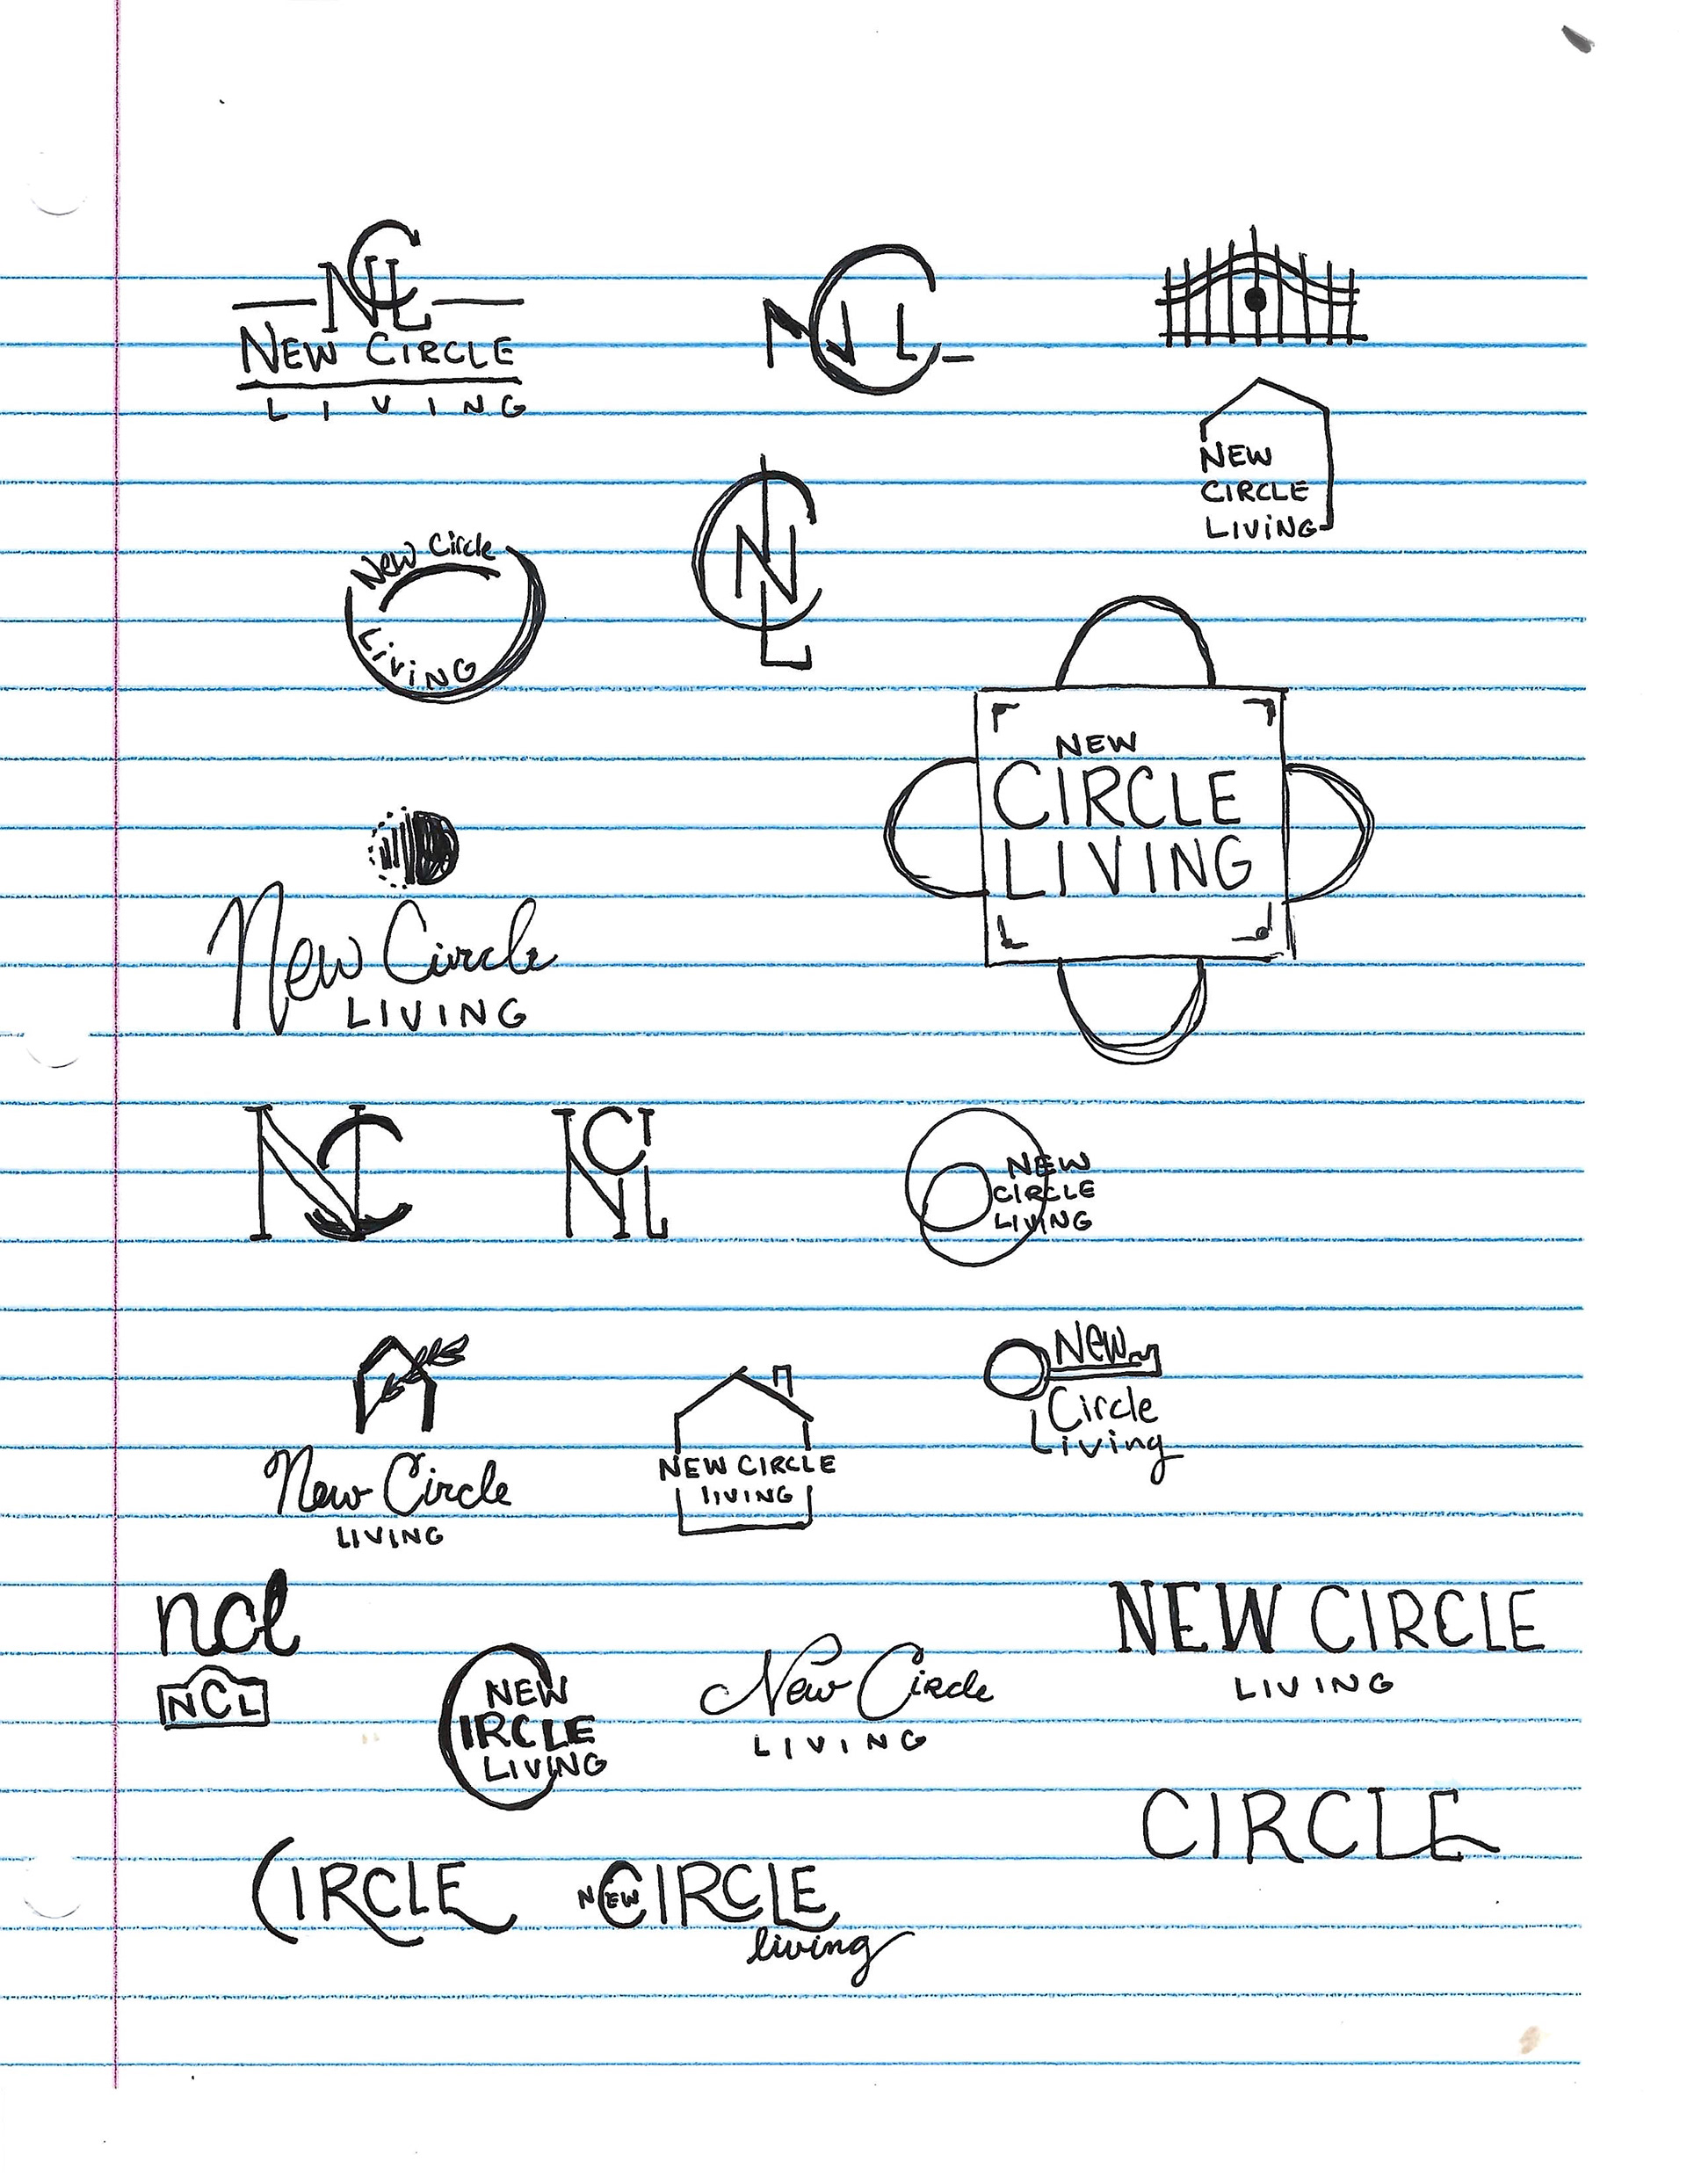 NCL
NEW CIRCLE
LIVING
NCL
NEW
CIRCLE
LIVING
New Circle
LIVING
NCL
NEW
CIRCLE
LIVING
New Circle
LIVING
NC
NCL
NEW
CIRCLE
LIVING
New Circle
LIVING
NEW CIRCLE
LIVING
New
Circle
Living
ncl
NCL
NEW
CIRCLE
LIVING
New Circle
LIVING
NEW CIRCLE
LIVING
CIRCLE
CIRCLE
NEW CIRCLE
living